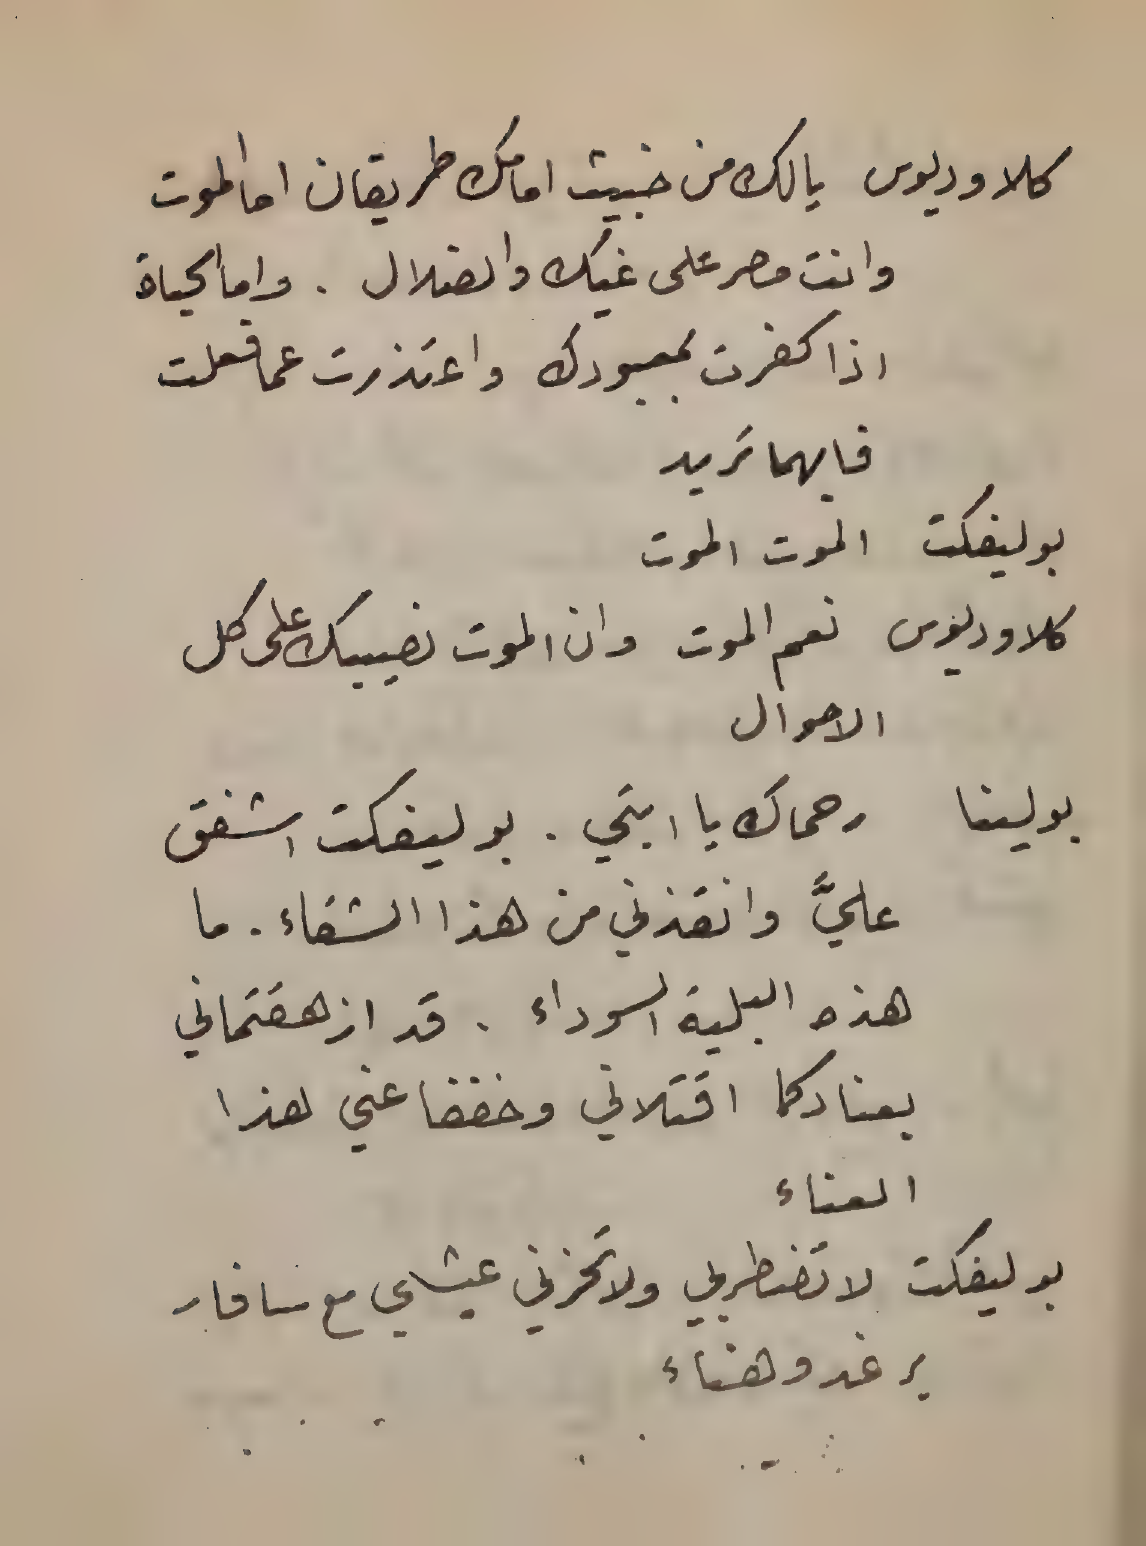 كلاوديوس يالك من خبيث امامك طريقان اما الموت
وانت مصر على غيك والضلال . واما الحياة
اذا كفرت بمعبودك واعتذرت عما فعلت
فايهما تريد
بوليفكت الموت الموت
كلاوديوس نعم الموت وان الموت نصيبك على كل
الاحوال
بولينا رحماك يا ابتي . بوليفكت اشفق
عليَّ وانقذني من هذا الشقاء . ما
هذه البلية السوداء . قد ازهقتماني
بعنادكما اقتلاني وخففا عني هذا
العناء
بوليفكت لا تضطربي ولا تحزني عيشي مع سافار
برغد وهناء